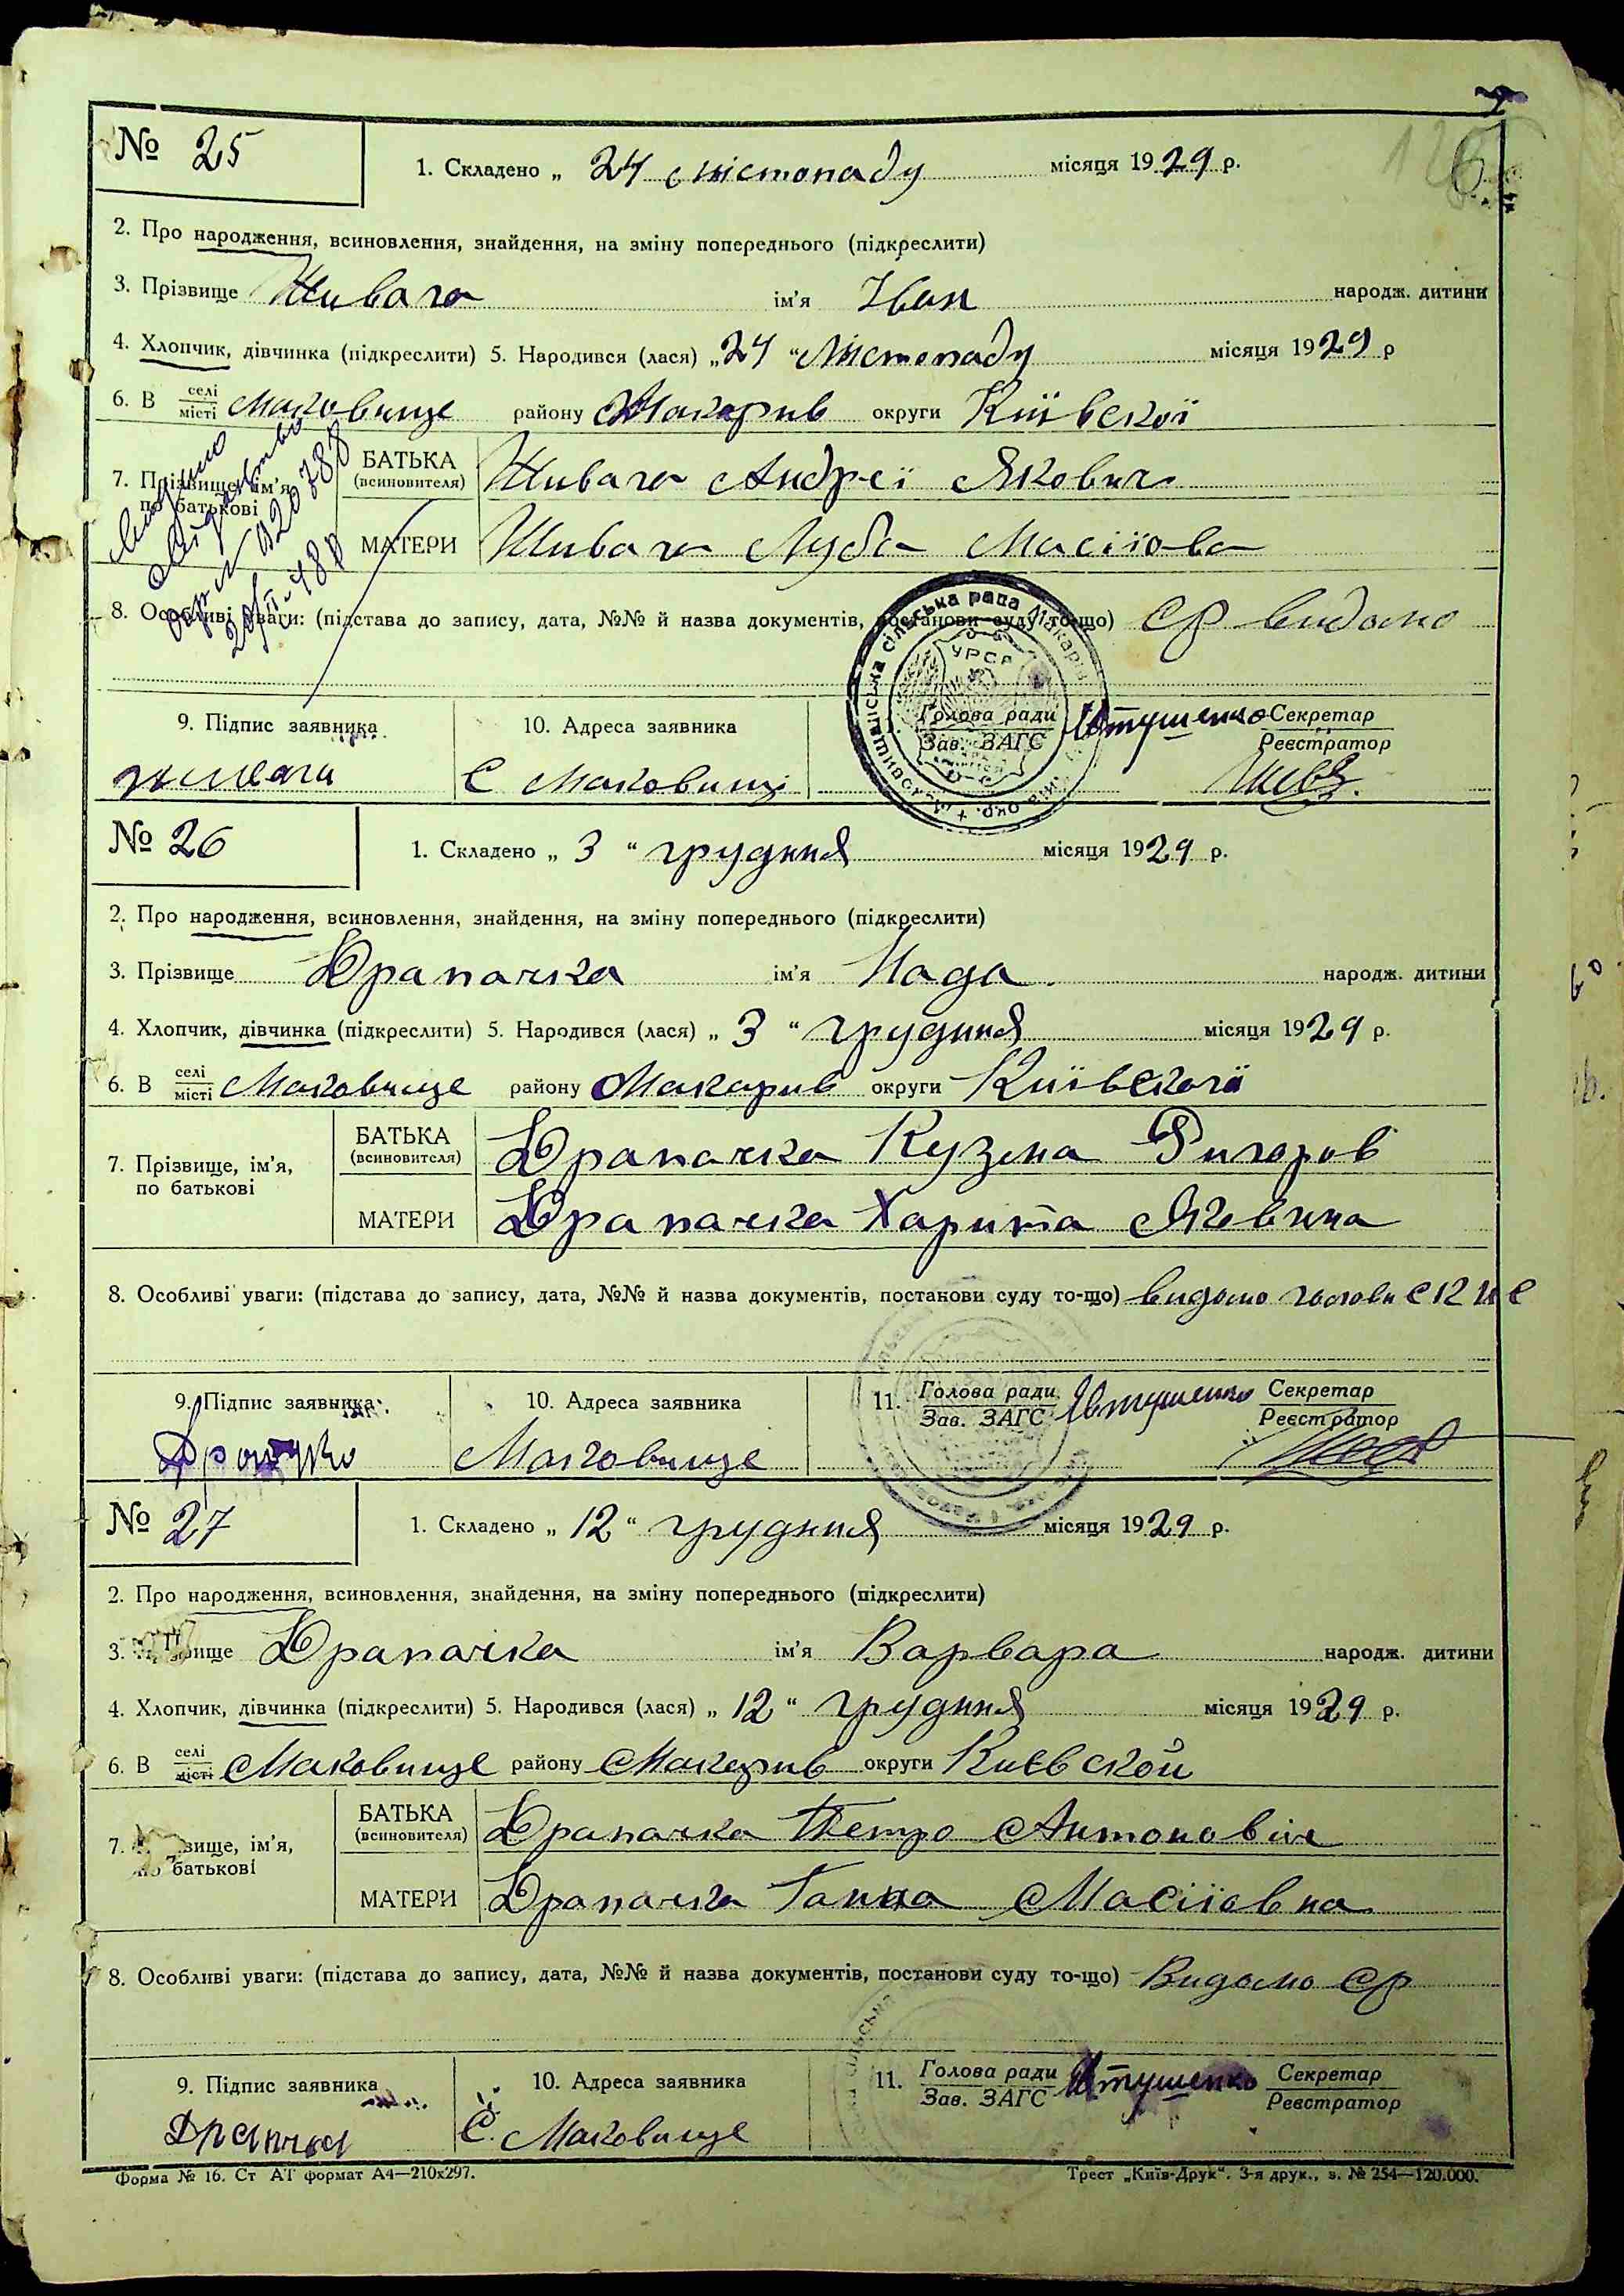 № 25
1. Складено „ 24 листопаду місяця 1929 р.
2. Про народження, всиновлення, знайдення, на зміну попереднього (підкреслити)
3. Прізвище Живага ім'я Іван народж. дитини
4. Хлопчик, дівчинка (підкреслити) 5. Народився (лася) „24 “ Листопаду місяця 1929 р
6. В селі місті Маковище району Макарив округи Київскої
7. Прізвище, ім'я, по батькові
БАТЬКА (всиновителя) Живага Андреї Якович
МАТЕРИ Живага Луба Масіїова
8. Особливі уваги: (підстава до запису, дата, №№ й назва документів, постанови суду то-що) СР видано
9. Підпис заявника 10. Адреса заявника Голова ради Зав. ЗАГС Секретар Реєстратор
живага С Маковищі
№ 26
1. Складено „ 3 “ грудння місяця 1929 р.
2. Про народження, всиновлення, знайдення, на зміну попереднього (підкреслити)
3. Прізвище Драпачка ім'я Надя народж. дитини
4. Хлопчик, дівчинка (підкреслити) 5. Народився (лася) „ 3 “ грудння місяця 1929 р.
6. В селі місті Маковище району Макарив округи Київскої
7. Прізвище, ім'я, по батькові
БАТЬКА (всиновителя) Драпачка Кузма
МАТЕРИ Драпачка Харита
8. Особливі уваги: (підстава до запису, дата, №№ й назва документів, постанови суду то-що) видано
9. Підпис заявника 10. Адреса заявника 11. Голова ради Зав. ЗАГС Явтушенко Секретар Реєстратор
Маковище
№ 27
1. Складено „ 12 “ грудння місяця 1929 р.
2. Про народження, всиновлення, знайдення, на зміну попереднього (підкреслити)
3. ище Драпачка ім'я Варвара народж. дитини
4. Хлопчик, дівчинка (підкреслити) 5. Народився (лася) „ 12 “ грудння місяця 1929 р.
6. В селі місті Маковище району Макарив округи Киевской
7. вище, ім'я, по батькові
БАТЬКА (всиновителя) Драпачка Петро Антоновіч
МАТЕРИ Драпачка Ганна Масіїовна
8. Особливі уваги: (підстава до запису, дата, №№ й назва документів, постанови суду то-що) Видано Ср
9. Підпис заявника 10. Адреса заявника 11. Голова ради Зав. ЗАГС Явтушенко Секретар Реєстратор
С. Маковище
Форма № 16. Ст АТ формат А4—210х297. Трест „Київ-Друк“. 3-я друк., з. № 254—120.000.